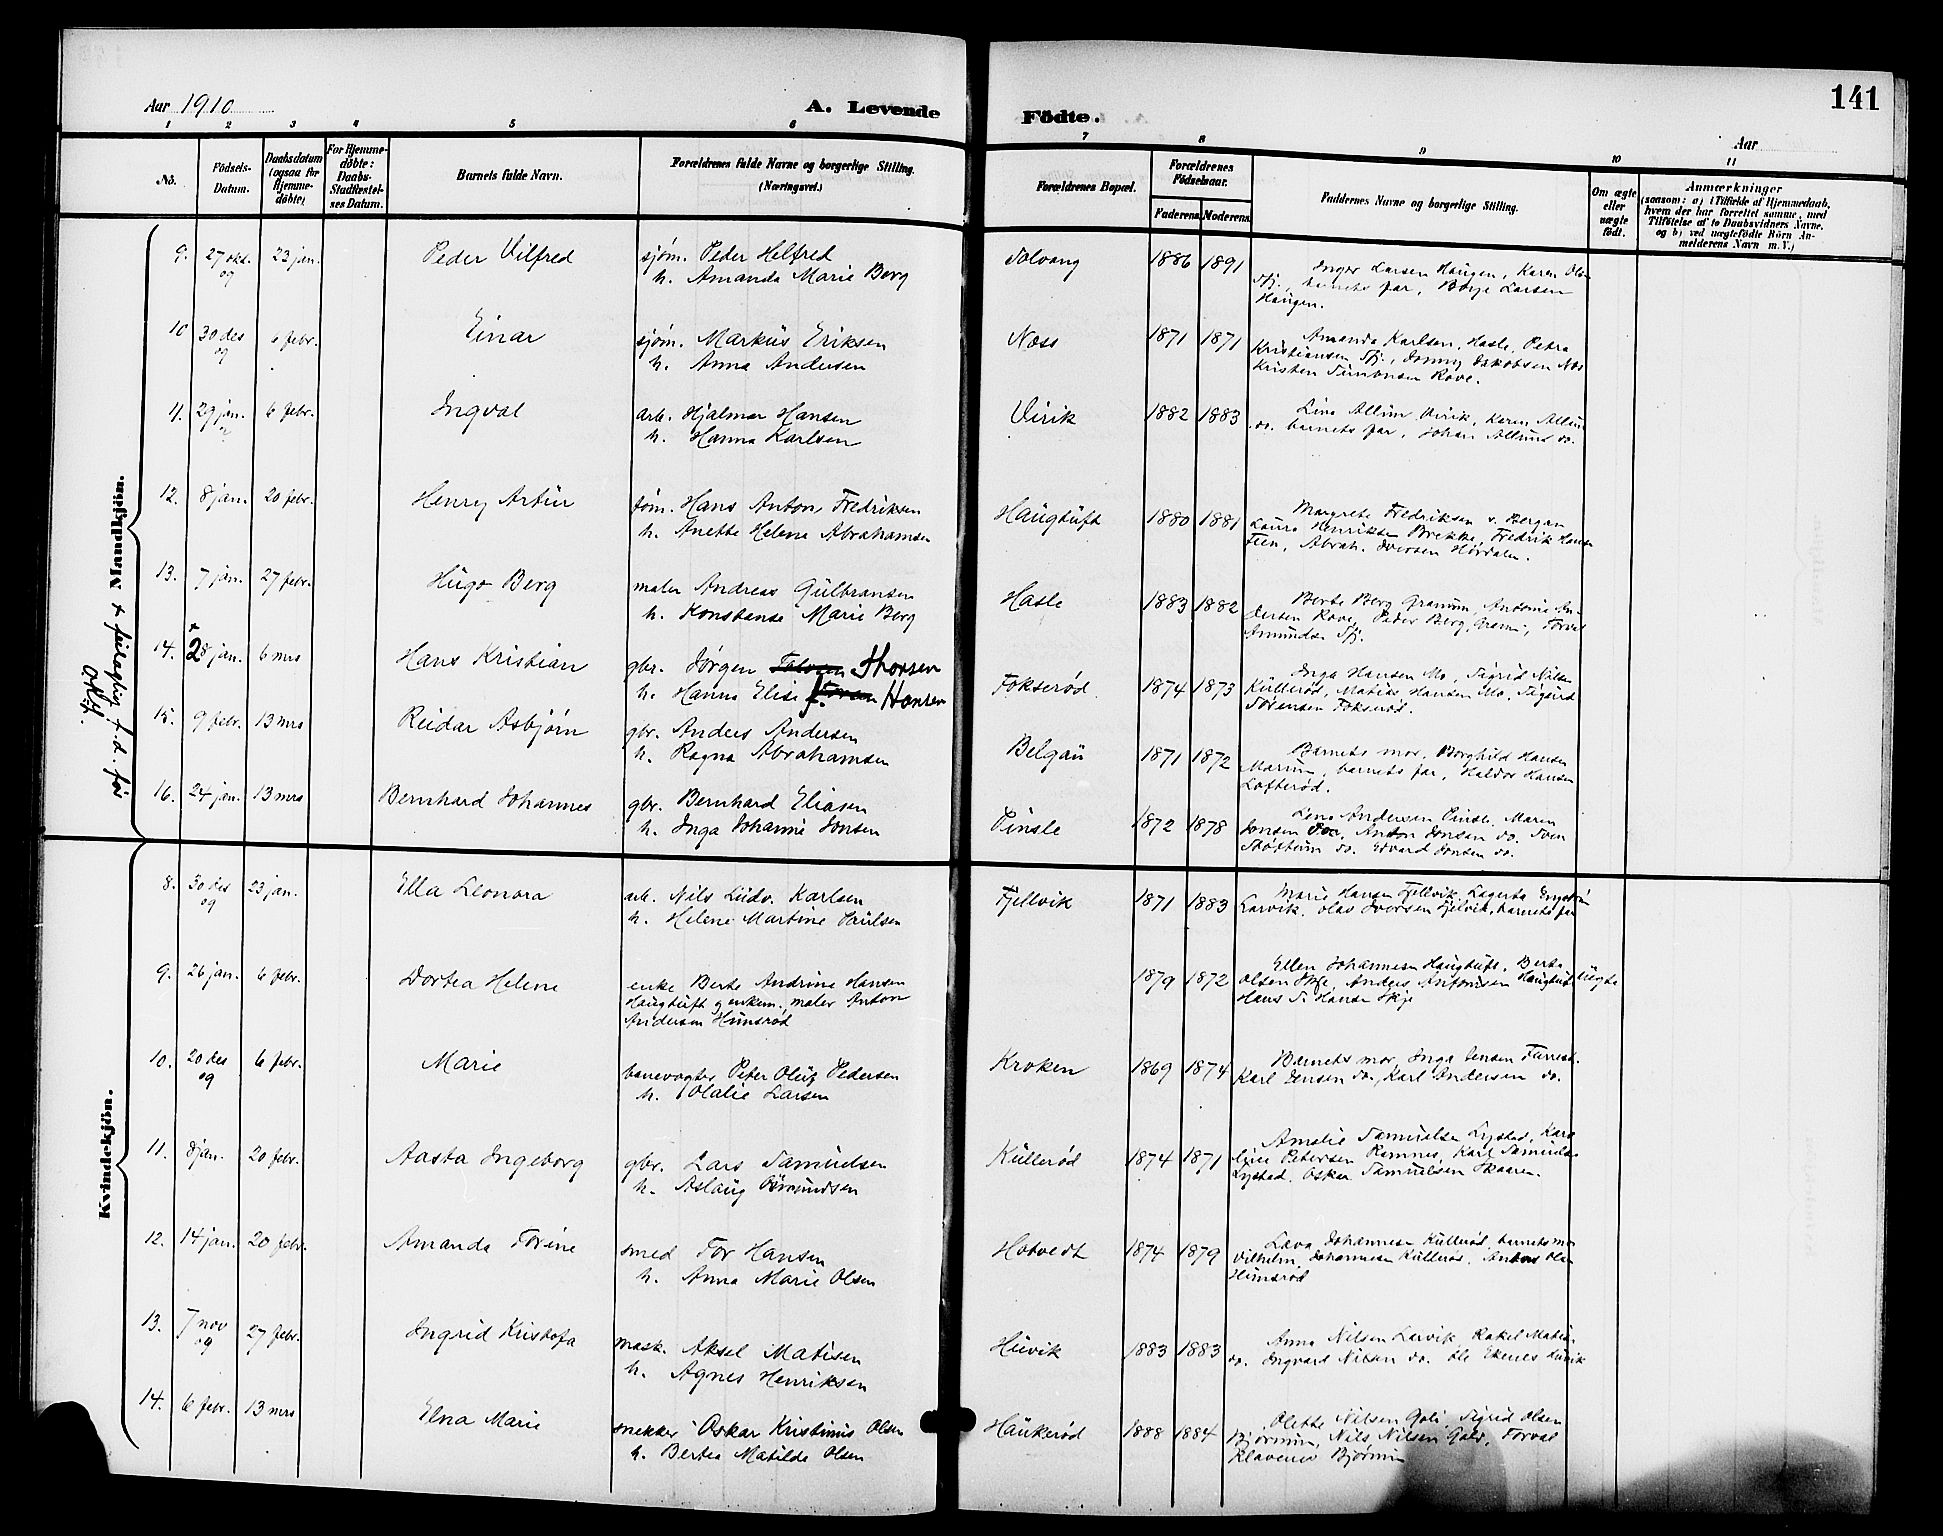 141
Aar 1910
A. Levende
Födte.
Aar
1 2 3 4 5 6 7 8 9 10 11
No.
Födsels-Datum.
Daabsdatum (ogsaa for Hjemme-döbte)
For Hjemme-döbte: Daabs-Stadfæstel-ses Datum.
Barnets fulde Navn.
Forældrenes fulde Navne og borgerlige Stilling. (Næringsvei.)
Forældrenes Bopæl.
Forældrenes Födselsaar.
Faderens. Moderens.
Faddernes Navne og borgerlige Stilling.
Om ægte eller uægte födt.
Anmærkninger
(saasom: a) i Tilfælde af Hjemmedaab,
hvem der har forrettet samme, med
Tilföielse af to Daabsvidners Navne,
og b) ved uægtefödte Börn An-
melderens Navn m. V.)
Mandkjön.
x feilagtig f. d. før
9. 27 okt. 09 23 jan. Peder Vilfred sjøm. Peder Helfred Solvang 1886 1891 Inger Larsen Haugen, Karen Olsen
h. Amanda Marie Berg barnets far, Borge Larsen
Haugen.
10 30 des 09 6 febr. Einar sjøm. Markus Eriksen Næss 1871 1871 Amanda Karlsen, Hasle, Petra
h. Anna Andersen Kristiansen Jakobsen Næs
Kristen Rove.
11. 29 jan. 6 febr. Ingval arb. Hjalmar Hansen Virik 1882 1883 Lina Allum Virik, Karen Allum
h. Hanna Karlsen do. barnets far, Johan Allum do.
12. 8 jan. 20 febr. Henry Artur sjøm. Hans Anton Fredriksen Haugtuft 1880 1881 Margrete Fredriksen v. Bergan
h. Anette Helene Abrahamsen Laura Henriksen Brekke, Fredrik Hansen
Feen, Abrah. Iversen Hørdalen.
13. 7 jan. 27 febr. Hugo Berg maler Andreas Gulbransen Hasle 1883 1882 Berte Berg Granum, Antonie An-
h. Konstanse Marie Berg dersen Rove, Peder Berg, Torval
Amundsen Sfj.
14. x 28 jan. 6 mrs Hans Kristian gbr. Jørgen Thorsen Fokserød 1874 1873 Inga Hansen Mo, Sigrid Nilsen
h. Hanna Elise f. Hansen Kullerød, Matias Hansen Mo, Sigurd
Sørensen Fokserød.
15. 9 febr. 13 mrs Reidar Asbjørn gbr. Anders Andersen Belgau 1871 1872 Barnets mor, Borghild Hansen
h. Ragna Abrahamsen Marum, barnets far, Haldor Hansen
Lofterød.
16. 24 jan. 13 mrs Bernhard Johannes gbr. Bernhard Eliasen Vinsle 1872 1878 Lena Andersen Vinsle, Maren
h. Inga Johanne Jonsen Jonsen do, Anton Jonsen do. Sven
do. Edvard Jonsen do.
Kvindekjön.
8. 30 des 09 23 jan. Ella Leonora arb. Nils Ludv. Karlsen Fjellvik 1871 1883 Marie Hansen Fjellvik, Lagerta Engström
h. Helene Martine Paulsen Larvik, Olav Iversen Fjelvik, barnets far
9. 26 jan. 6 febr. Dortea Helene enke Berte Andrine Hansen 1879 1872 Ellen Johannesen Haugtuft, Berte
Haugtuft g enkem. maler Anton Olsen Skje, Anders Antonisen Haugtuft uægte
Andersen Himsrød Hans S. Hansen Skje
10. 20 des 09 6 febr. Marie banevogter Peter Oluf Pedersen Kroken 1869 1874 Barnets mor, Inga Jensen Furrest.
h. Olalie Larsen Karl Jensen do., Karl Andersen do.
11. 8 jan. 20 febr. Aasta Ingeborg gbr. Lars Samuelsen Kullerød 1874 1871 Amalie Samuelsen Lystad, Karo-
h. Aslaug Osmundsen line Petersen Ramnes, Karl Samuelsen
Lystad, Oskar Samuelsen Skaaren.
12. 14 jan. 20 febr. Amanda Torine smed Tor Hansen Hotvedt 1874 1879 Lava Johannesen Kullerød, barnets mor
h. Anna Marie Olsen Vilhelm Johannesen Kullerød, Anton Olsen
Himsrød
13. 7 nov 09 27 febr. Ingrid Kristofa mask. Aksel Matisen Huvik 1883 1883 Anna Nilsen Larvik, Rakel Matis.
h. Agnes Henriksen do. Ingvard Nilsen do. Ole Ekenes Huvik
14. 6 febr. 13 mrs Elna Marie snekker Oskar Kristinius Olsen Haukerød 1888 1884 Olette Nilsen Goli, Sigrid Olsen
h. Bertea Matilde Olsen Bjørnum, Nils Nilsen Goli, Torval
Klavenes Bjørnum